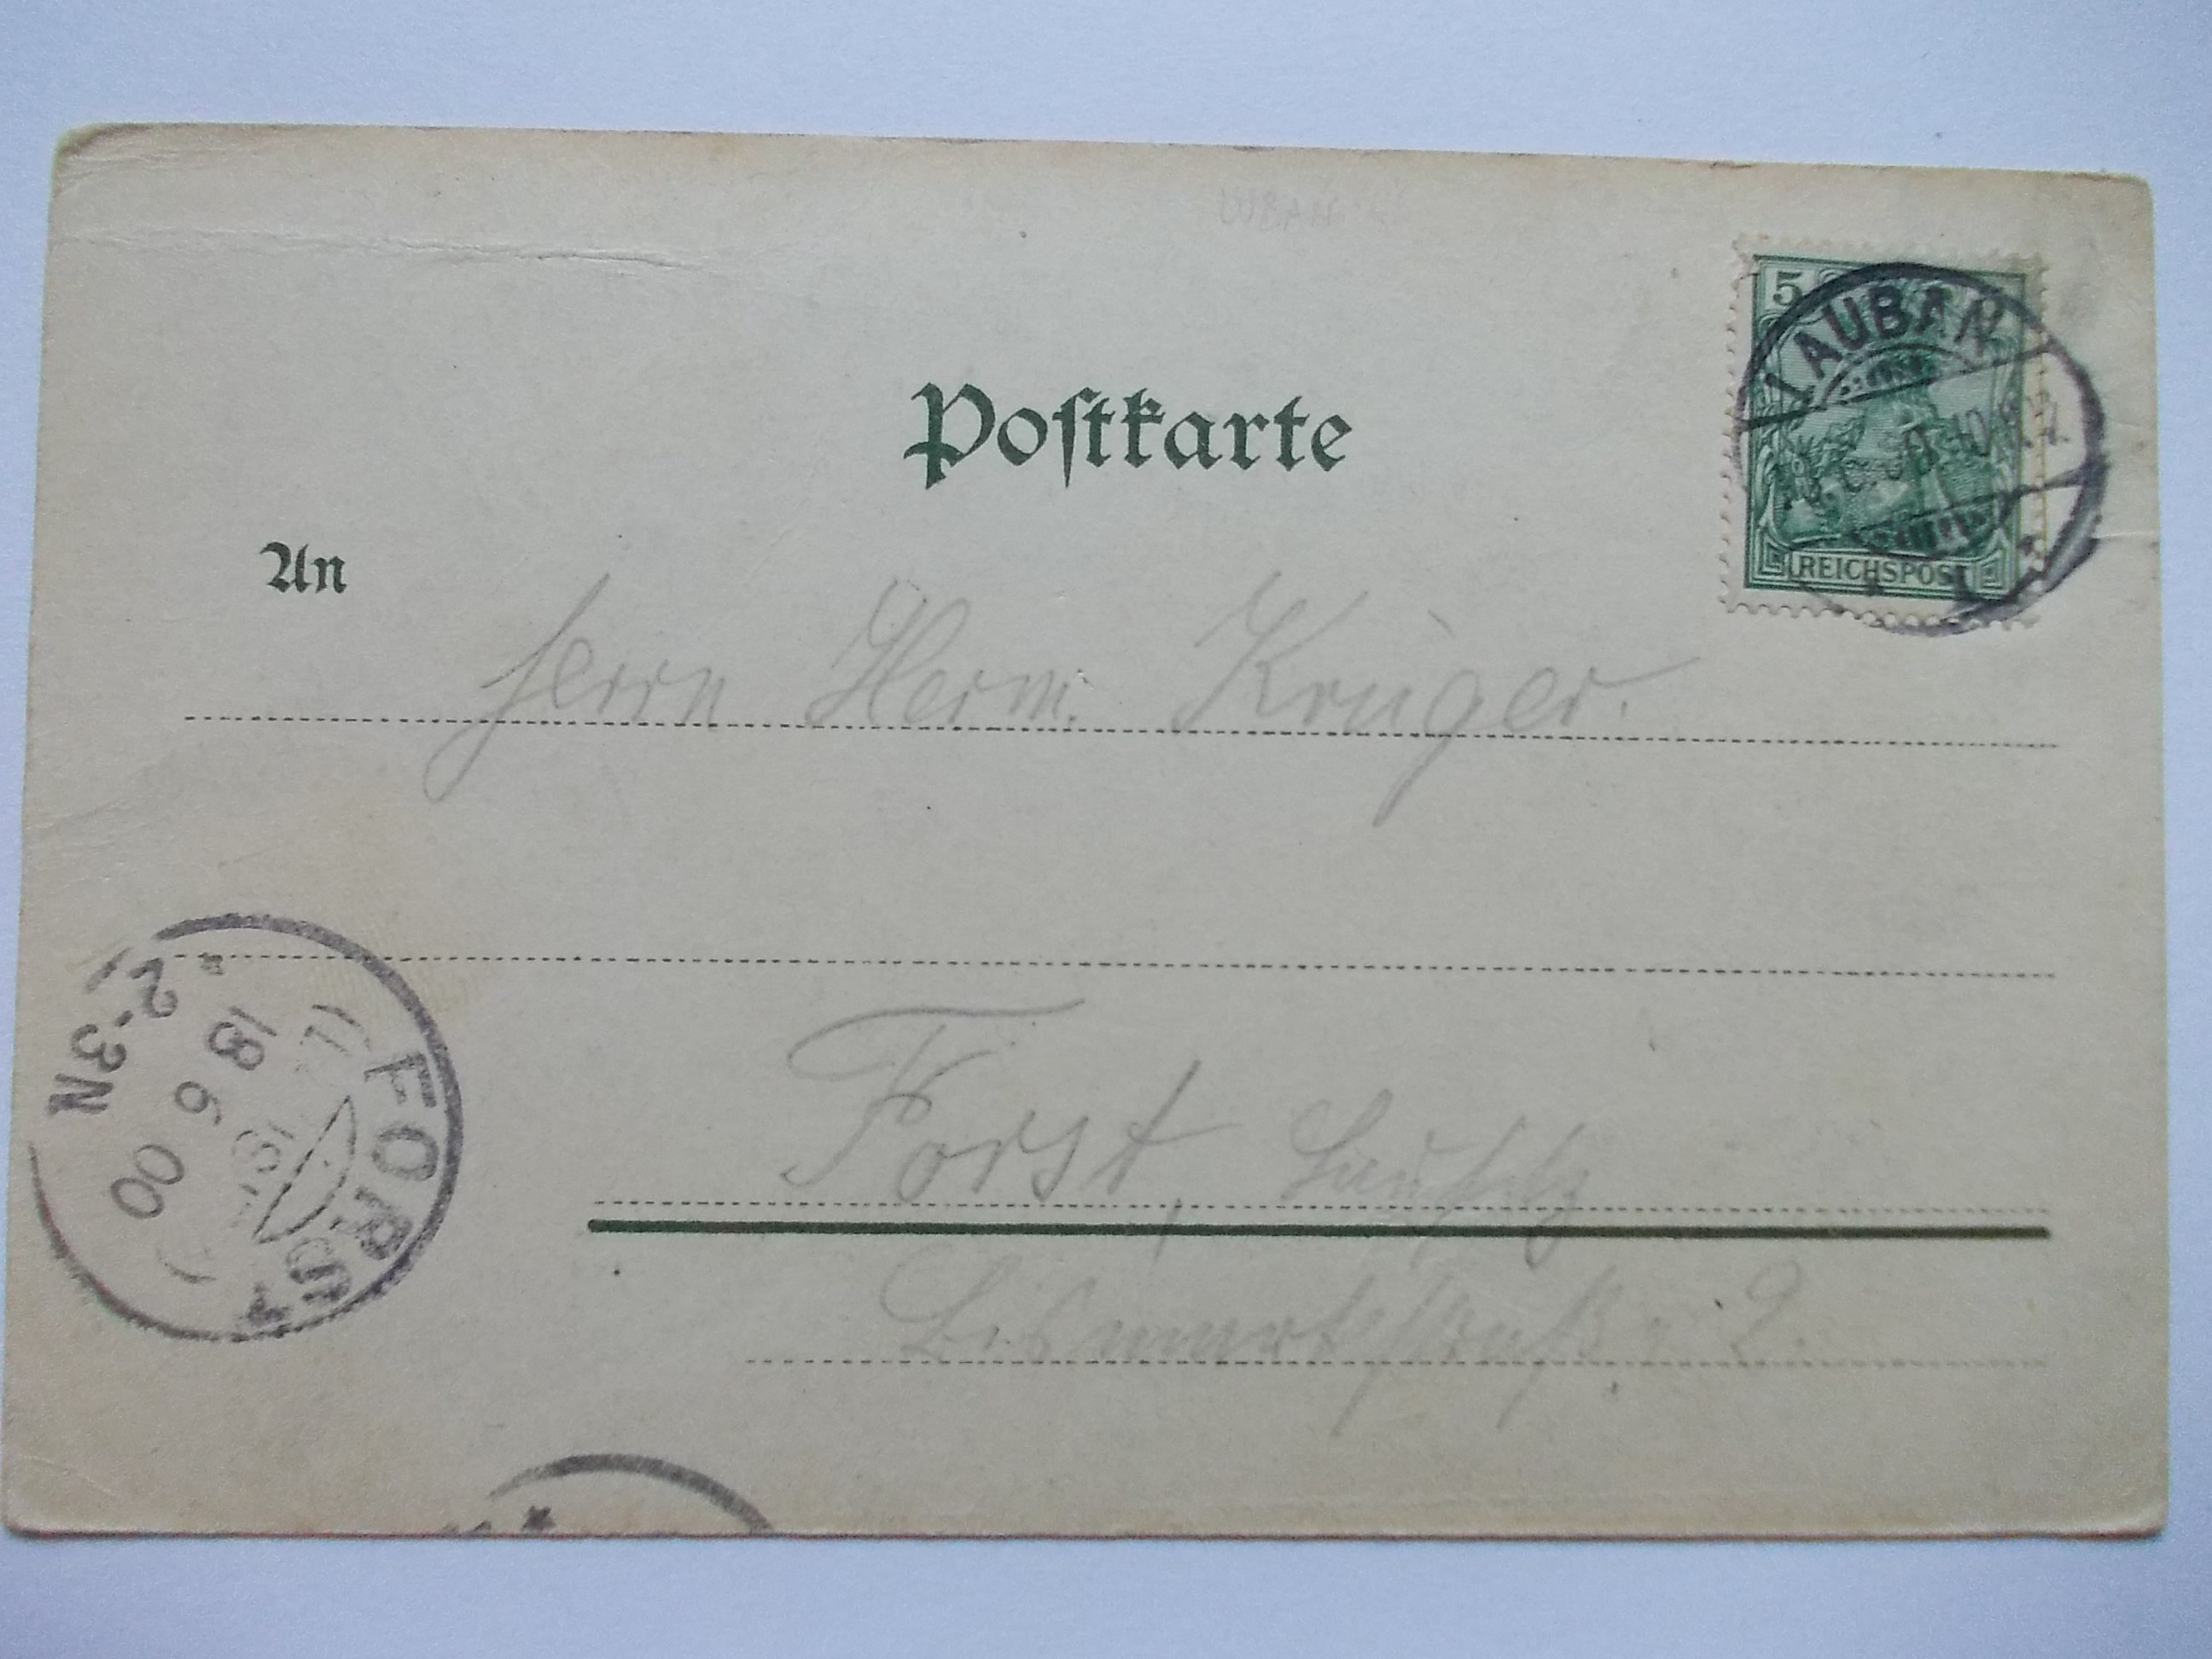 LUBAN
Postkarte
5
LAUBAN
REICHSPOST
An
Herrn Herm. Krüger.
Forst, Lausitz
Bismarckstraße 2.
FORST
18 6 00
2-3N